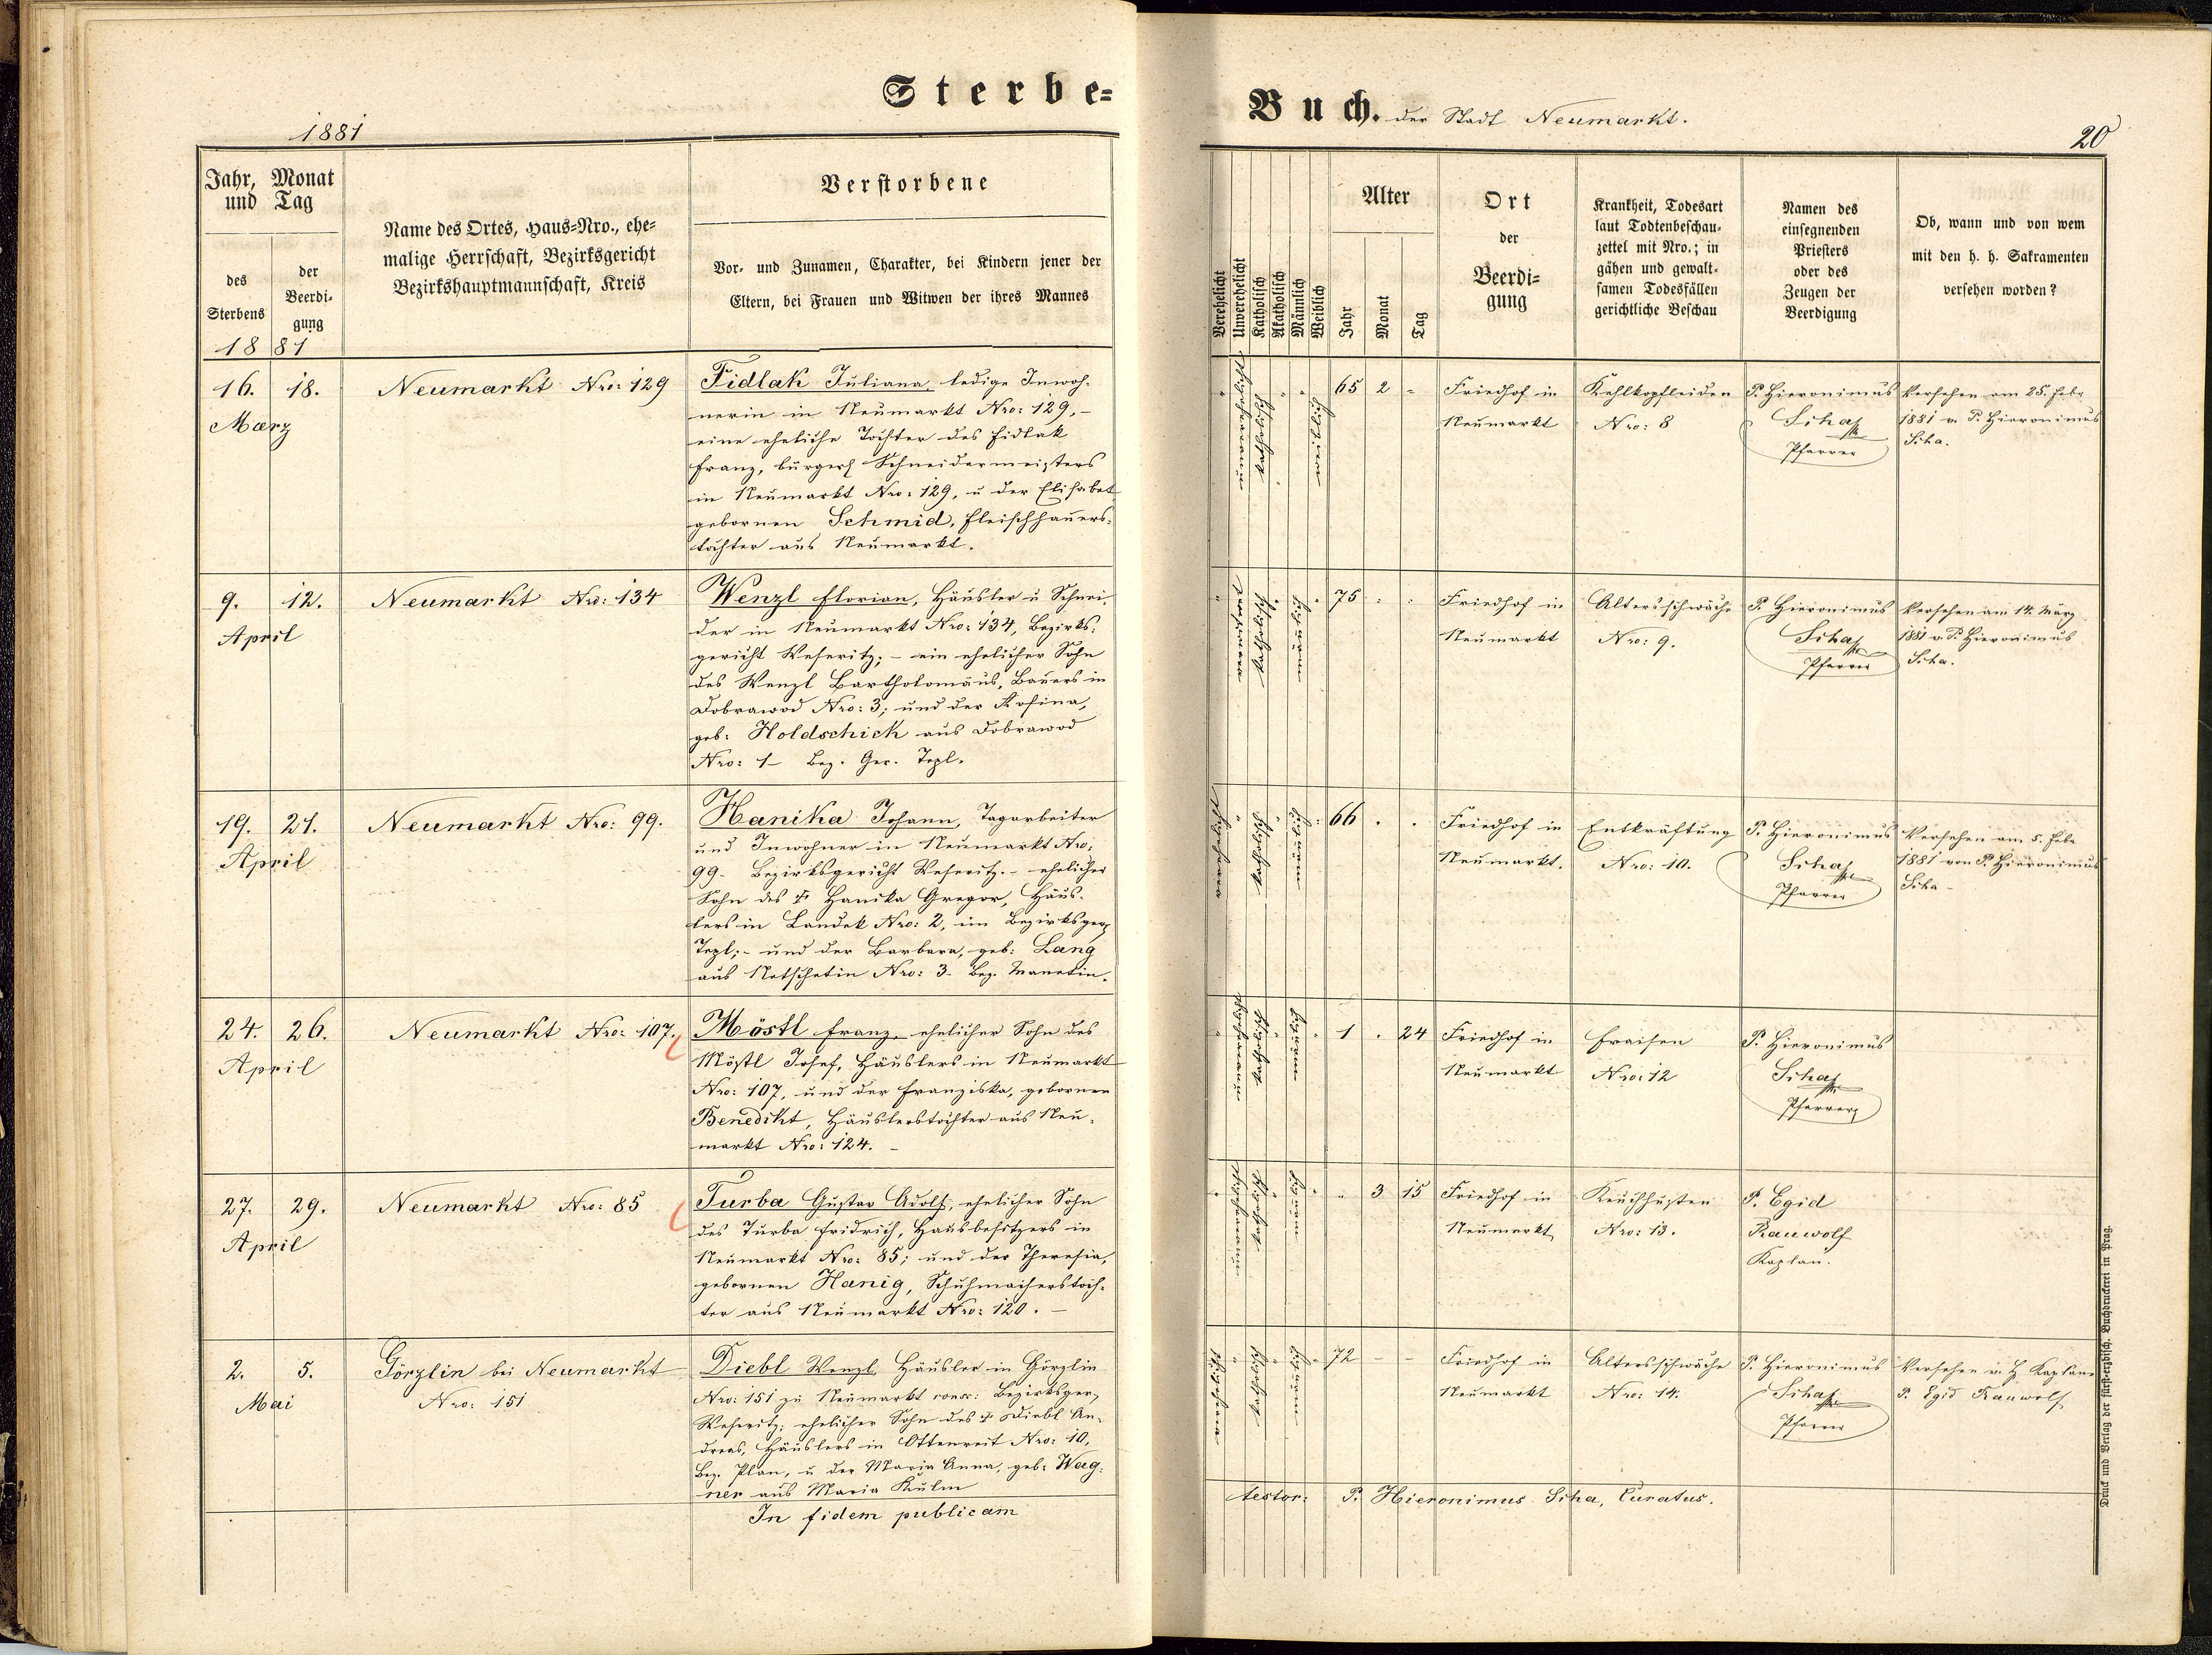 Sterbe-
1881
Jahr, Monat
und Tag
des
Sterbens
der
Beerdi-
gung
1881
Name des Ortes, Haus-Nro., ehe-
malige Herrschaft, Bezirksgericht
Bezirkshauptmannschaft, Kreis
Verstorbene
Vor- und Zunamen, Charakter, bei Kindern jener der
Eltern, bei Frauen und Witwen der ihres Mannes
16. 18.
Maerz
Neumarkt Nro: 129
Fidlak Juliana, ledige Inwoh-
nerin in Neumarkt Nro: 129, -
eine eheliche Tochter des Fidlak
Franz, bürgerl Schneidermeisters
in Neumarkt Nro: 129, u der Elisabet
gebornen Schmid, Fleischhauers-
tochter aus Neumarkt.
9. 12.
April
Neumarkt Nro: 134
Wenzl Florian, Häusler u Schnei-
der in Neumarkt Nro: 134, Bezirks-
gericht Weseritz; - ein ehelicher Sohn
des Wenzl Bartholomäus, Bauers in
Dobrawod Nro: 3; und der Rosina,
geb: Holdschick aus Dobrawod
Nro: 1 Bez. Ger. Tepl.
19. 21.
April
Neumarkt Nro: 99.
Hanika Johann, Tagarbeiter
und Inwohner in Neumarkt Nro:
99. Bezirksgericht Weseritz. - ehelicher
Sohn des † Hanika Gregor, Häus-
lers in Landek Nro: 2, im Bezirksger
Tepl; - und der Barbara, geb: Lang
aus Netschetin Nro: 3. Bez. Manetin.
24. 26.
April
Neumarkt Nro: 107.
Möstl Franz, ehelicher Sohn des
Möstl Josef, Häuslers in Neumarkt
Nro: 107, und der Franziska, gebornen
Benedikt, Häuslerstochter aus Neu-
markt Nro: 124. -
27. 29.
April
Neumarkt Nro: 85
Turba Gustav Adolf, ehelicher Sohn
des Turba Fridrich, Hausbesitzers in
Neumarkt Nro: 85; und der Theresia,
gebornen Hanig, Schuhmacherstoch-
ter aus Neumarkt Nro: 120. -
2. 5.
Mai
Görzlin bei Neumarkt
Nro: 151
Diebl Wenzl, Häusler in Görzlin
Nro: 151 zu Neumarkt consc: Bezirksger,
Weseritz; ehelicher Sohn des † Diebl An-
dreas, Häuslers in Ottenreit Nro: 10,
Bez. Plan, u der Maria Anna, geb: Wag-
ner aus Maria Kulm
In fidem publicam
Buch. der Stadt Neumarkt.
20
Verehelicht
Unverehelicht
Katholisch
Akatholisch
Männlich
Weiblich
Alter
Jahr
Monat
Tag
Ort
der
Beerdi-
gung
Krankheit, Todesart
laut Todtenbeschau-
zettel mit Nro.; in
gähen und gewalt-
samen Todesfällen
gerichtliche Beschau
Namen des
einsegnenden
Priesters
oder des
Zeugen der
Beerdigung
Ob, wann und von wem
mit den h. h. Sakramenten
versehen worden?
65 2 -
Friedhof in
Neumarkt
Kehlkopfleiden
Nro: 8
P. Hieronimus
Siha
Pfarrer
Versehen am 25. Febr
1881 v. P. Hieronimus
Siha.
75
Friedhof in
Neumarkt
Altersschwäche
Nro: 9.
P. Hieronimus
Siha
Pfarrer
Versehen am 14. März
1881 v. P. Hieronimus
Siha.
66
Friedhof in
Neumarkt.
Entkräftung
Nro: 10.
P. Hieronimus
Siha
Pfarrer
Versehen am 5. Febr
1881 von P. Hieronimus
Siha -
1 . 24
Friedhof in
Neumarkt
Fraisen
Nro: 12
P. Hieronimus
Siha
Pfarrer
" 3 15
Friedhof in
Neumarkt
Keuchhusten
Nro: 13.
P. Egid
Rauwolf
Kaplan.
72 - -
Friedhof in
Neumarkt
Altersschwäche
Nro: 14.
P. Hieronimus
Siha
Pfarrer
Versehen v. H Kaplane
P. Egid Rauwolf
testor: P. Hieronimus Siha, Curatus.
Druck und Verlag der fürst-erzbisch. Buchdruckerei in Prag.